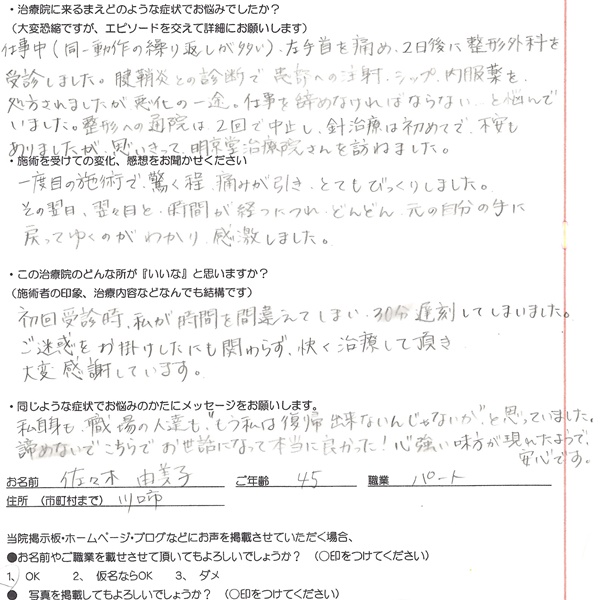 ・治療院に来るまえどのような症状でお悩みでしたか？
（大変恐縮ですが、エピソードを交えて詳細にお願いします）
仕事中（同一動作の繰り返しが多い）、左手首を痛め、2日後に整形外科を
受診しました。腱鞘炎との診断で患部への注射、シップ、内服薬を、
処方されましたが悪化の一途。仕事を諦めなければならない…と悩んで
いました。整形への通院は2回で中止し、針治療は初めてで、不安も
ありましたが、思いきって、明京堂治療院さんを訪ねました。
・施術を受けての変化、感想をお聞かせください
一度目の施術で、驚く程、痛みが引き、とてもびっくりしました。
その翌日、翌々日と、時間が経つにつれ、どんどん、元の自分の手に
戻ってゆくのがわかり、感激しました。
・この治療院のどんな所が『いいな』と思いますか？
（施術者の印象、治療内容などなんでも結構です）
初回受診時、私が時間を間違えてしまい、30分遅刻してしまいました。
ご迷惑をお掛けしたにも関わらず、快く治療して頂き
大変感謝しています。
・同じような症状でお悩みのかたにメッセージをお願いします。
私自身も、職場の人達も、"もう私は復帰出来ないんじゃないか"、と思っていました。
諦めないでこちらでお世話になって本当に良かった！心強い味方が現れたようで、
安心です。
お名前 佐々木 由美子 ご年齢 45 職業 パート
住所 （市町村まで） 川口市
当院掲示板・ホームページ・ブログなどにお声を掲載させていただく場合、
●お名前やご職業を載せさせて頂いてもよろしいでしょうか？ （○印をつけてください）
1、 OK 2、 仮名ならOK 3、 ダメ
● 写真を掲載してもよろしいでしょうか？ （○印をつけてください）